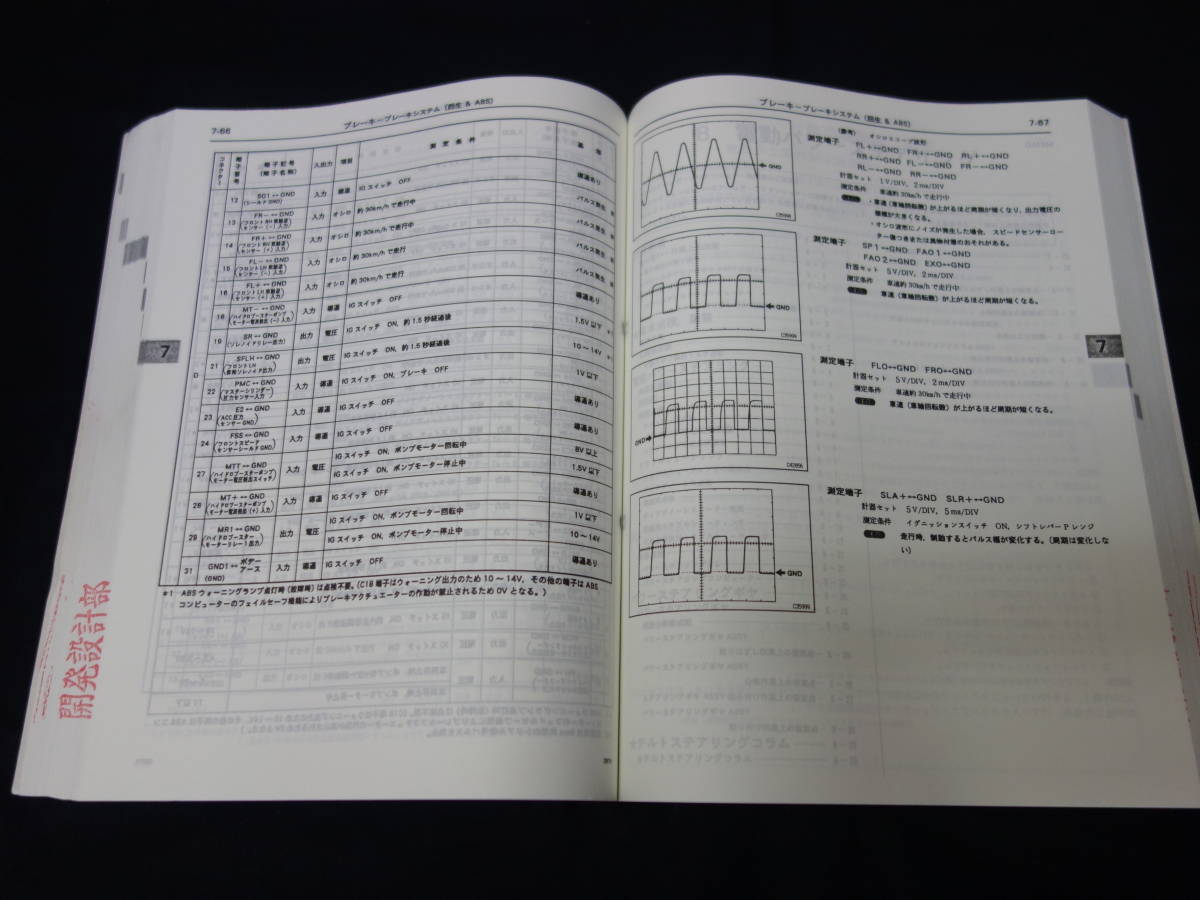 7-66
ブレーキーブレーキシステム (回生 & ABS)
コネクター 端子番号 端子記号 (端子名称) 入出力 項目 測定条件 基準
12 SG1↔GND (シールドGND) 入力 導通 IGスイッチ OFF 導通あり
13 FR−↔GND (フロントRH車輪速センサー(−)入力) 入力 オシロ 約30km/hで走行中 パルス発生
14 FR+↔GND (フロントRH車輪速センサー(+)入力) 入力 オシロ 約30km/hで走行中 パルス発生
15 FL−↔GND (フロントLH車輪速センサー(−)入力) 入力 オシロ 約30km/hで走行 パルス発生
16 FL+↔GND (フロントLH車輪速センサー(+)入力) 入力 オシロ 約30km/hで走行 パルス発生
18 MT−↔GND (ハイドロブースターポンプモーター電圧検出(−)入力) 入力 導通 IGスイッチ OFF 導通あり
19 SR↔GND (ソレノイドリレー出力) 出力 電圧 IGスイッチ ON, 約1.5秒経過後 1.5V以下
21 SFLH↔GND 出力 電圧 IGスイッチ ON, 約1.5秒経過後 10〜14V
D
22 PMC↔GND (マスターシリンダー圧力センサー入力) 入力 導通 IGスイッチ ON, ブレーキ OFF 1V以下
23 E2↔GND (ACC圧力センサーGND) 入力 導通 IGスイッチ OFF 導通あり
24 FSS↔GND (フロントスピードセンサーシールドGND) 入力 導通 IGスイッチ OFF 導通あり
27 MTT↔GND (ハイドロブースターポンプモーター電圧検出スイッチ) 入力 電圧 IGスイッチ ON, ポンプモーター回転中 8V以上
IGスイッチ ON, ポンプモーター停止中 1.5V以下
28 MT+↔GND (ハイドロブースターポンプモーター電圧検出(+)入力) 入力 導通 IGスイッチ OFF 導通あり
29 MR1↔GND (ハイドロブースターモーターリレー1出力) 出力 電圧 IGスイッチ ON, ポンプモーター回転中 1V以下
IGスイッチ ON, ポンプモーター停止中 10〜14V
31 GND1↔ボデーアース (GND) 入力 導通 IGスイッチ OFF 導通あり
*1 ABSウォーニングランプ点灯時(故障時)は点検不要。(C18端子はウォーニング出力のため10〜14V, その他の端子はABS
コンピューターのフェイルセーフ機能によりブレーキアクチュエーターの作動が禁止されるため0Vとなる。)
7
開発設計部
ブレーキーブレーキシステム (回生 & ABS)
7-67
(参考) オシロスコープ波形
測定端子 FL+↔GND FR+↔GND RL+↔GND
RR+↔GND FL−↔GND FR−↔GND
RL−↔GND RR−↔GND
計器セット 1V/DIV, 2ms/DIV
測定条件 車速約30km/hで走行中
・車速(車輪回転数)が上がるほど周期が短くなり, 出力電圧の
振幅が大きくなる。
・オシロ波形にノイズが発生した場合, スピードセンサーロー
ター傷つきまたは異物付着のおそれがある。
GND
測定端子 SP1↔GND FAO1↔GND
FAO2↔GND EXO↔GND
計器セット 5V/DIV, 2ms/DIV
測定条件 車速約30km/hで走行中
車速(車輪回転数)が上がるほど周期が短くなる。
GND
測定端子 FLO↔GND FRO↔GND
計器セット 5V/DIV, 2ms/DIV
測定条件 車速約30km/hで走行中
車速(車輪回転数)が上がるほど周期が短くなる。
GND
測定端子 SLA+↔GND SLR+↔GND
計器セット 5V/DIV, 5ms/DIV
測定条件 イグニッションスイッチ ON, シフトレバーPレンジ
走行時, 制動するとパルス幅が変化する。(周期は変化しな
い)
GND
7